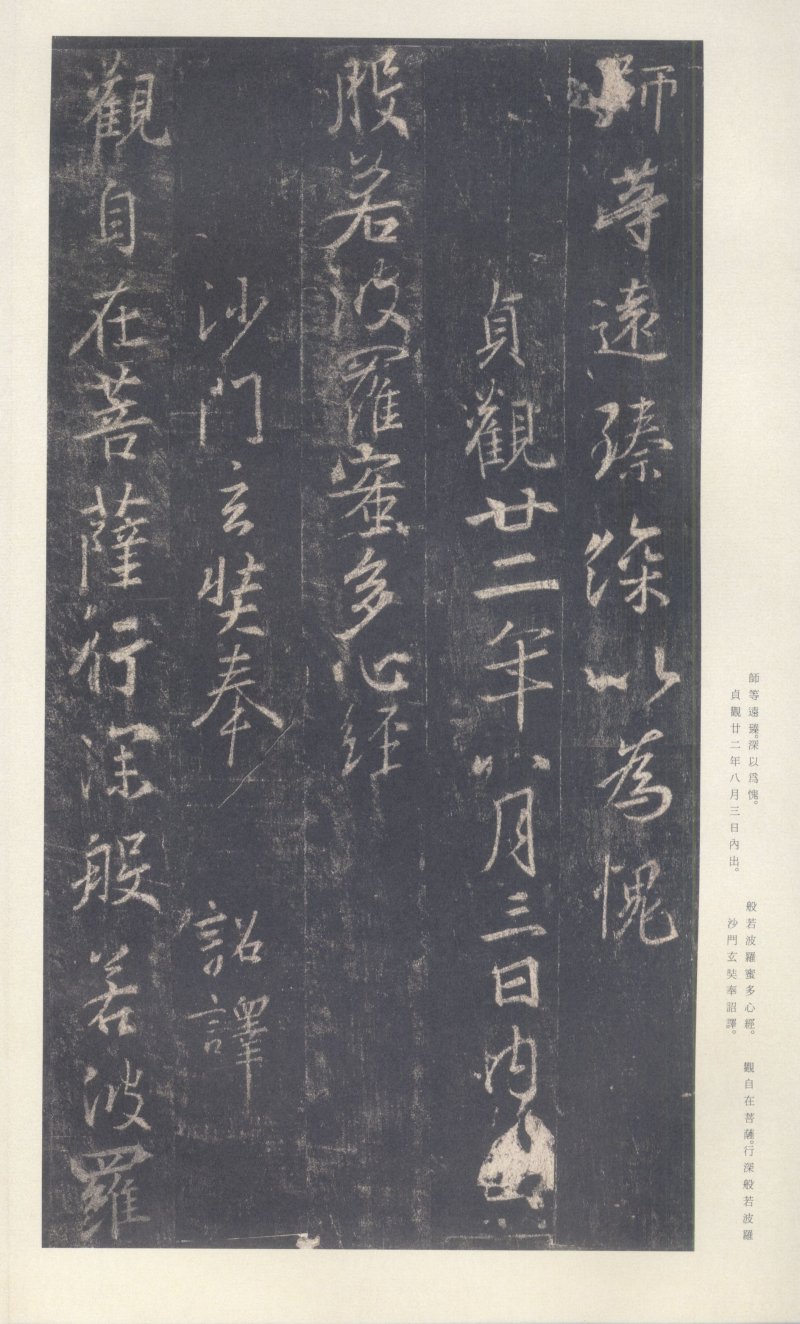 師等遠臻深以為愧
貞觀廿二年八月三日內出
般若波羅蜜多心經
沙門玄奘奉 詔譯
觀自在菩薩行深般若波羅
師等遠臻。深以爲愧。
貞觀廿二年八月三日內出。
般若波羅蜜多心經。
沙門玄奘奉詔譯。
觀自在菩薩。行深般若波羅